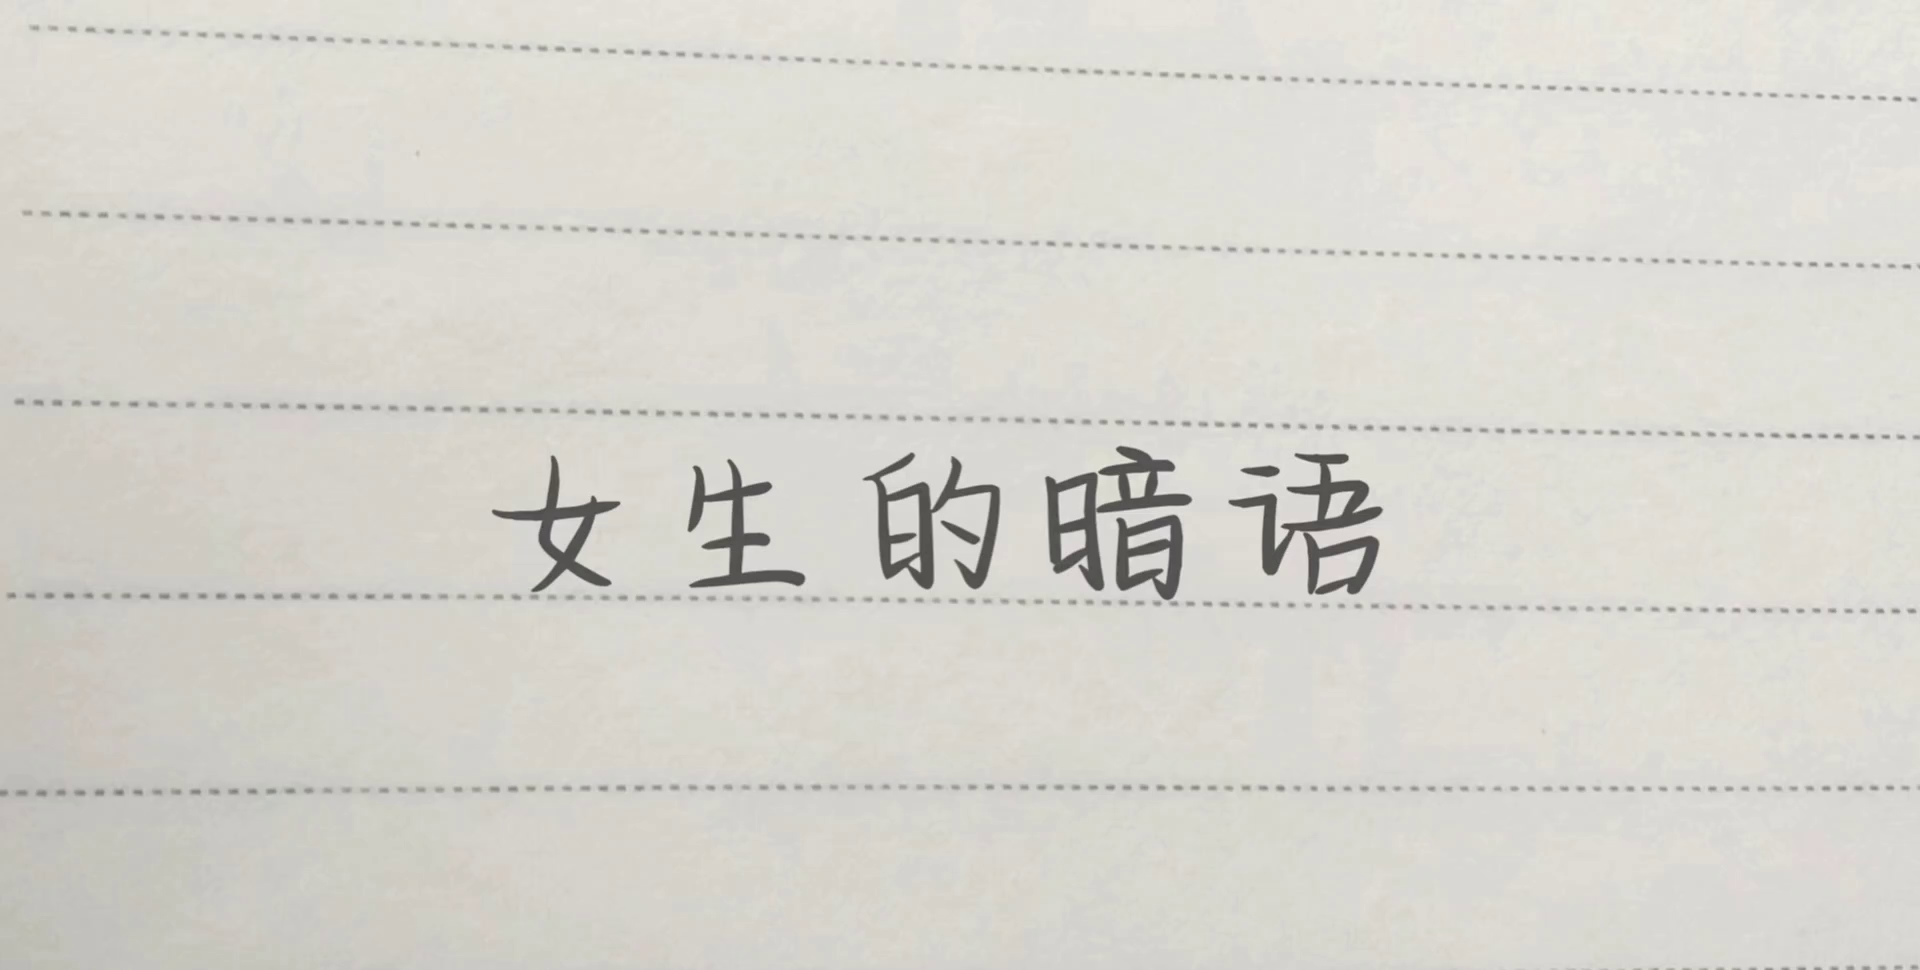 女生的暗语